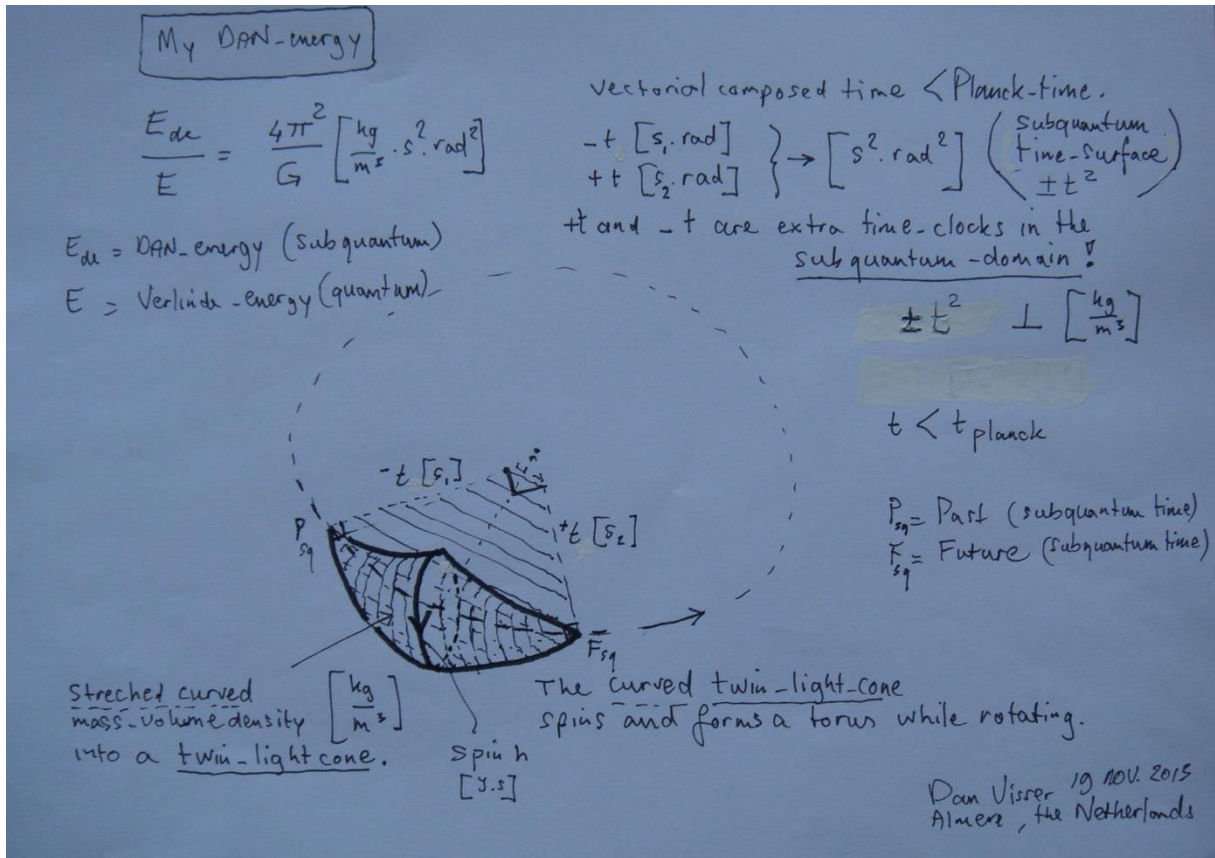 My DAN-energy
E_de / E = 4π² / G [kg/m³ · s² · rad²]
E_de = DAN-energy (subquantum)
E = Verlinde-energy (quantum)
vectorial composed time < Planck-time.
-t [s₁.rad]
+t [s₂.rad]
} → [s². rad²]
(subquantum
time-surface
±t²)
+t and -t are extra time-clocks in the
subquantum-domain!
±t² ⊥ [kg/m³]
t < t planck
-t [s₁]
+t [s₂]
P_sq
F_sq
P_sq = Past (subquantum time)
F_sq = Future (subquantum time)
Streched curved
mass-volume density [kg/m³]
into a twin-light cone.
Spin h
[J.s]
The curved twin-light-cone
spins and forms a torus while rotating.
Dan Visser 19 nov. 2015
Almere, the Netherlands